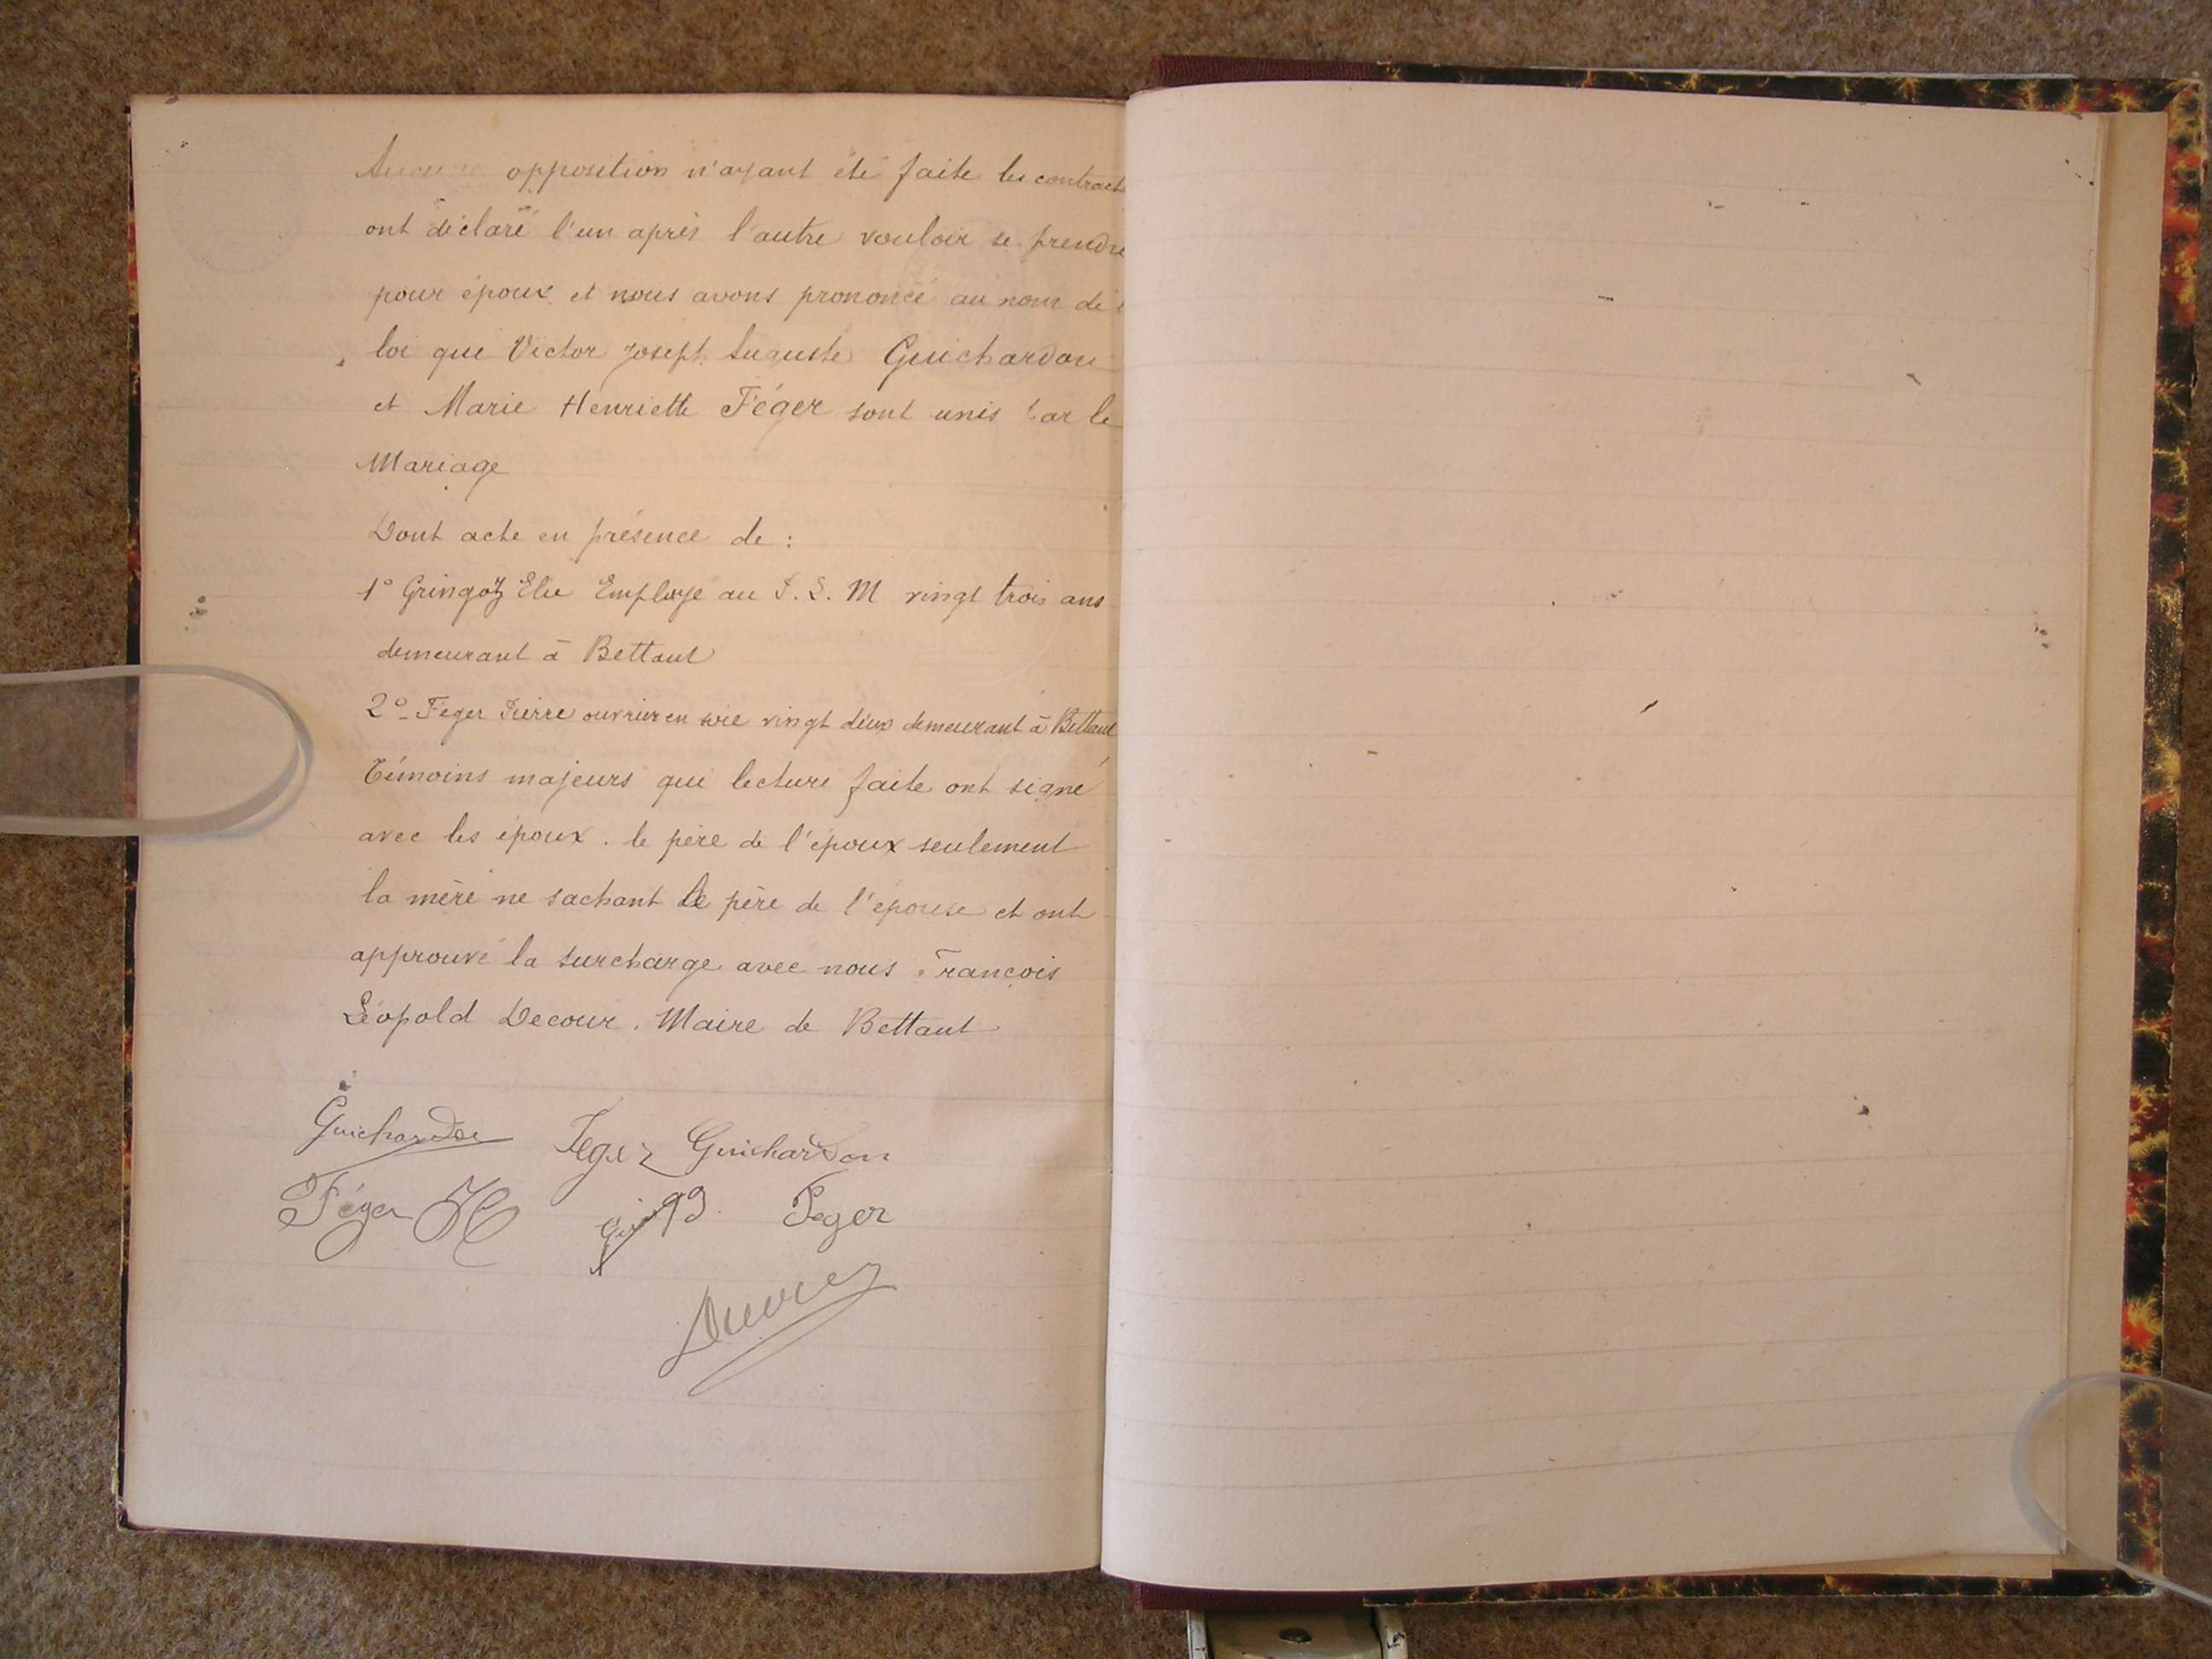 Aucune opposition n'ayant été faite les contract
ont déclaré l'un après l'autre vouloir se prendre
pour époux et nous avons prononcé au nom de
loi que Victor Joseph Auguste Guichardon
et Marie Henriette Féger sont unis par le
Mariage
Dont acte en présence de :
1° Gringoz Elie Employé au P. L. M vingt trois ans
demeurant à Bettant
2°- Féger Pierre ouvrier en soie vingt deux demeurant à Bettant
Témoins majeurs qui lecture faite ont signé
avec les époux. le père de l'époux seulement
la mère ne sachant le père de l'épouse et ont
approuvé la surcharge avec nous François
Léopold Decour. Maire de Bettant
Guichardon Feger Guichardon
Féger H Feger